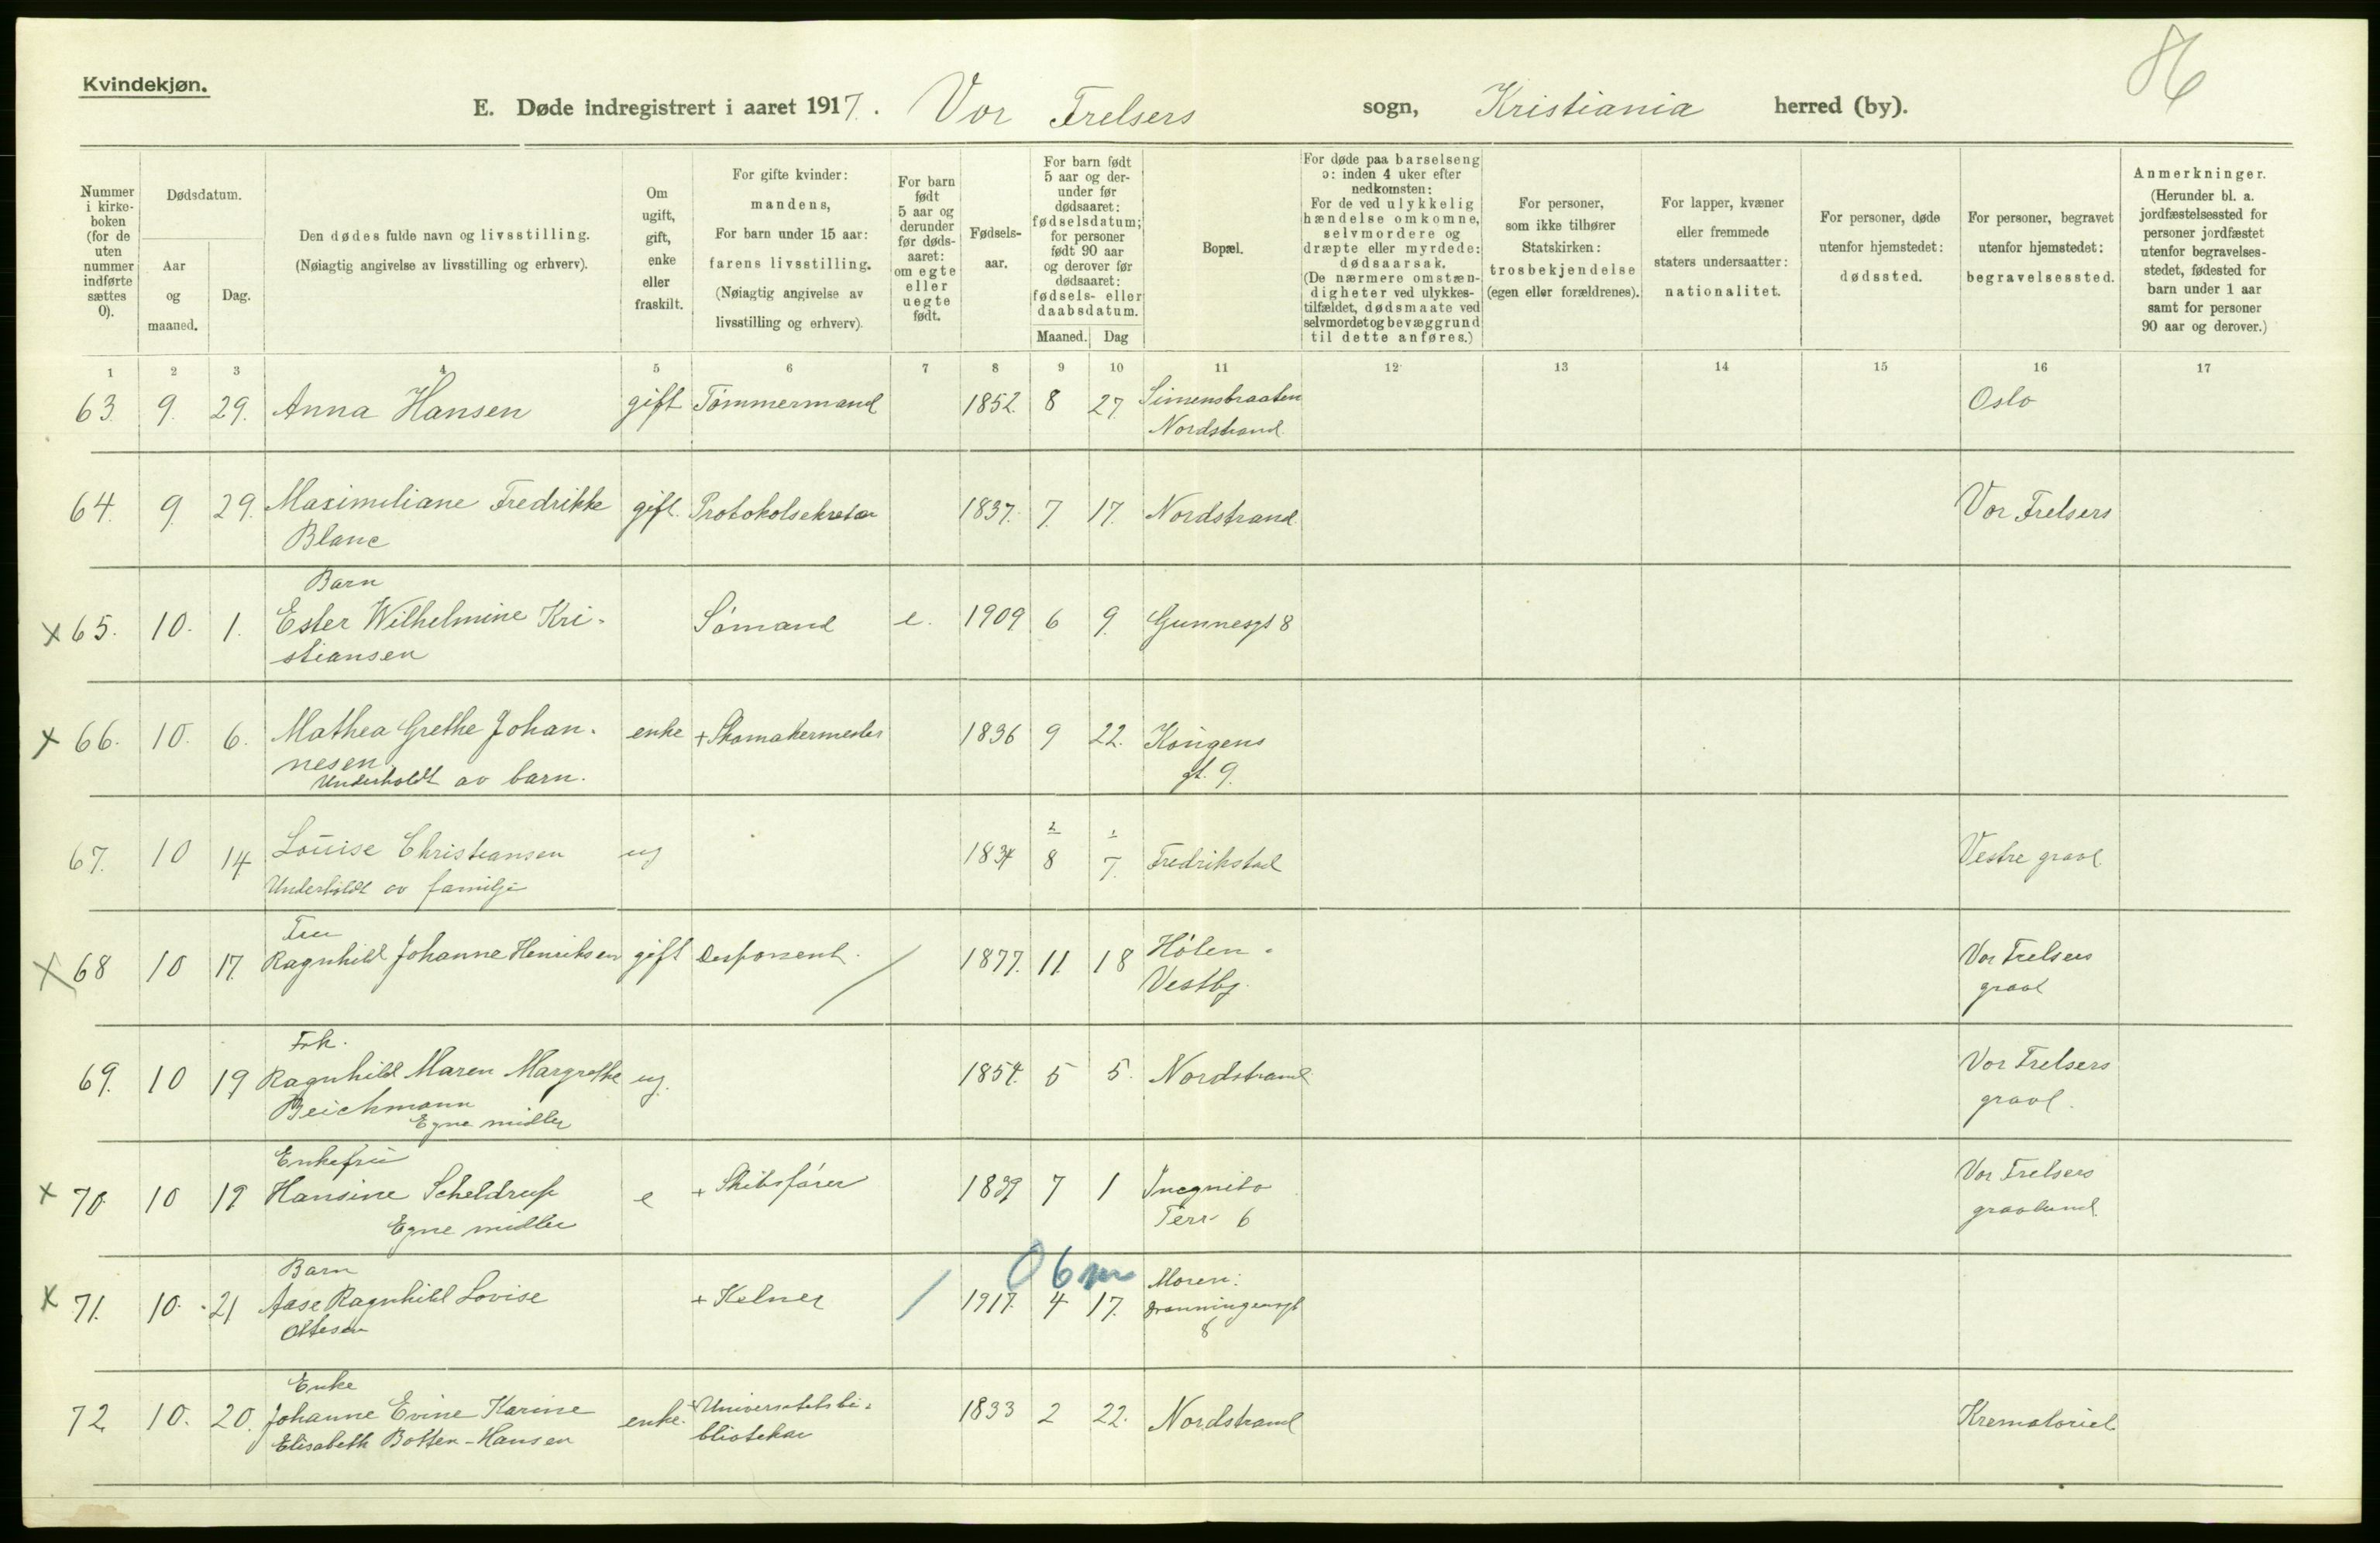 86
Kvindekjøn.
E. Døde indregistrert i aaret 1917. Vor Frelsers sogn, Kristiania herred (by).
Nummer i kirkeboken (for de uten nummer indførte sættes 0).
Dødsdatum.
Aar og maaned.
Dag.
Den dødes fulde navn og livsstilling.
(Nøiagtig angivelse av livsstilling og erhverv).
Om ugift, gift, enke eller fraskilt.
For gifte kvinder: mandens, For barn under 15 aar: farens livsstilling. (Nøiagtig angivelse av livsstilling og erhverv).
For barn født 5 aar og derunder før dødsaaret: om egte eller uegte født.
Fødselsaar.
For barn født 5 aar og derunder før dødsaaret: fødselsdatum; for personer født 90 aar og derover før dødsaaret: fødsels- eller daabsdatum.
Maaned. Dag
Bopæl.
For døde paa barselseng ɔ: inden 4 uker efter nedkomsten: For de ved ulykkelig hændelse omkomne, selvmordere og dræpte eller myrdede: dødsaarsak. (De nærmere omstændigheter ved ulykkestilfældet, dødsmaate ved selvmordet og bevæggrund til dette anføres.)
For personer, som ikke tilhører Statskirken: trosbekjendelse (egen eller forældrenes).
For lapper, kvæner eller fremmede staters undersaatter: nationalitet.
For personer, døde utenfor hjemstedet: dødssted.
For personer, begravet utenfor hjemstedet: begravelsessted.
Anmerkninger.
(Herunder bl. a. jordfæstelsessted for personer jordfæstet utenfor begravelsesstedet, fødested for barn under 1 aar samt for personer 90 aar og derover.)
1 2 3 4 5 6 7 8 9 10 11 12 13 14 15 16 17
63. 9. 29. Anna Hansen gift Tømmermand 1852. 8 27. Simensbraaten Oslo
Nordstrand.
64. 9. 29. Maximiliane Fredrikke gift. Protokolsekretær 1837. 7. 17. Nordstrand Vor Frelsers
Blanc
Barn
x 65. 10. 1. Ester Wilhelmine Kri- Sømand e. 1909 6 9. Gunnesgt 8
stiansen
x 66. 10. 6. Mathea Grethe Johan- enke + Skomakermester 1836 9 22. Kongens
nesen. gt. 9.
Underholdt av barn.
2 1
67. 10 14 Louise Christiansen ug 1834 8 7. Fredrikstad Vestre gravl.
Underholdt av familje
Fru
x 68 10 17. Ragnhild Johanne Henriksen gift Disponent. 1877. 11. 18 Hølen - Vor Frelsers
Vestby. gravl
Frk.
69. 10 19 Ragnhild Maren Margrethe ug. 1854. 5 5. Nordstrand Vor Frelsers
Beichmann gravl.
Egne midler
Enkefru
x 70. 10 19. Hansine Scheldrup e + Skibsfører 1839 7 1 Incognito Vor Frelsers
Egne midler Terr 6 gravlund.
Barn 06m Moren:
x 71. 10. 21 Aase Ragnhild Lovise + Kelner / 1917. 4 17. Dronningensgt
Ottesen 8
Enke
72 10. 20. Johanne Evine Karine enke. + Universitetsbi- 1833 2 22. Nordstrand Krematoriet.
Elisabeth Botten-Hansen bliotekar